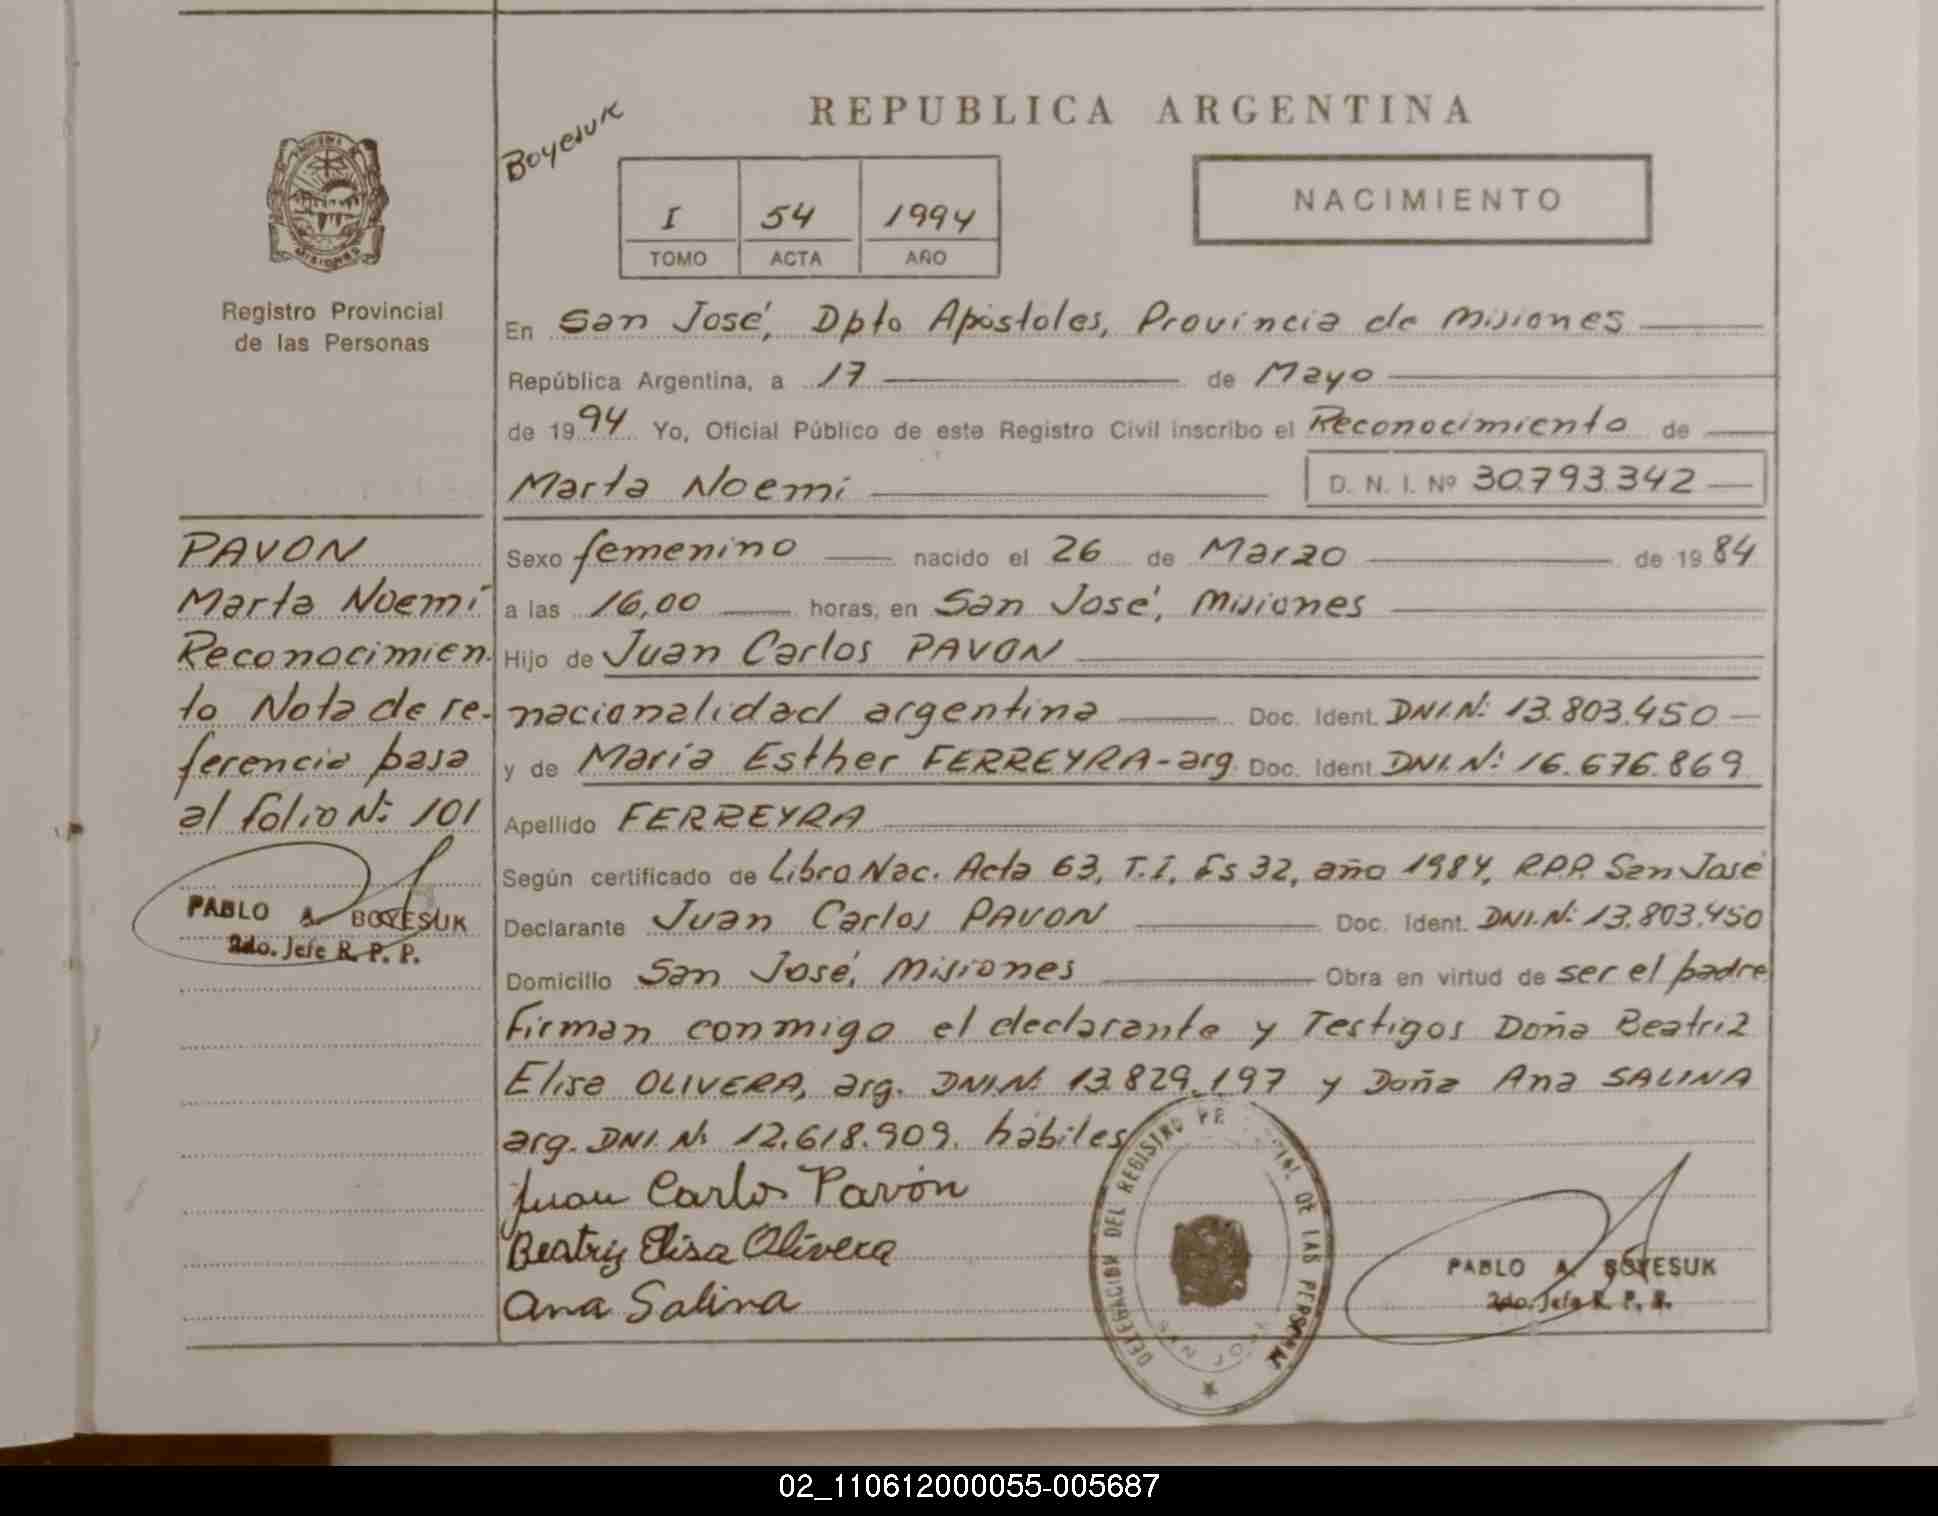 REPUBLICA ARGENTINA
Boyesuk
I 54 1994
TOMO ACTA AÑO
NACIMIENTO
MISIONES
Registro Provincial
de las Personas
En San José, Dpto Apóstoles, Provincia de Misiones
República Argentina, a 17 de Mayo
de 1994 Yo, Oficial Público de este Registro Civil inscribo el Reconocimiento de
Marta Noemi D. N. I. Nº 30.793.342
PAVON
Marta Noemí
Reconocimien-
to Nota de re-
ferencia pasa
al folio Nº: 101
PABLO A. BOYESUK
2do. Jefe R. P. P.
Sexo femenino nacido el 26 de Marzo de 1984
a las 16,00 horas, en San José, Misiones
Hijo de Juan Carlos PAVON
nacionalidad argentina Doc. Ident. DNI.Nº: 13.803.450
y de María Esther FERREYRA-arg. Doc. Ident. DNI.Nº: 16.676.869
Apellido FERREYRA
Según certificado de Libro Nac. Acta 63, T.I, Fs 32, año 1984, R.P.P. San José
Declarante Juan Carlos PAVON Doc. Ident. DNI.Nº: 13.803.450
Domicilio San José, Misiones Obra en virtud de ser el padre
Firman conmigo el declarante y Testigos Doña Beatriz
Elisa OLIVERA, arg. DNI.Nº: 13.829.197 y Doña Ana SALINA
arg. DNI. Nº 12.618.909. hábiles
Juan Carlos Pavón
Beatriz Elisa Olivera
Ana Salina
DELEGACION DEL REGISTRO DE LAS PERSONAS
SAN JOSE
PABLO A. BOYESUK
2do. Jefe R. P. P.
02_110612000055-005687